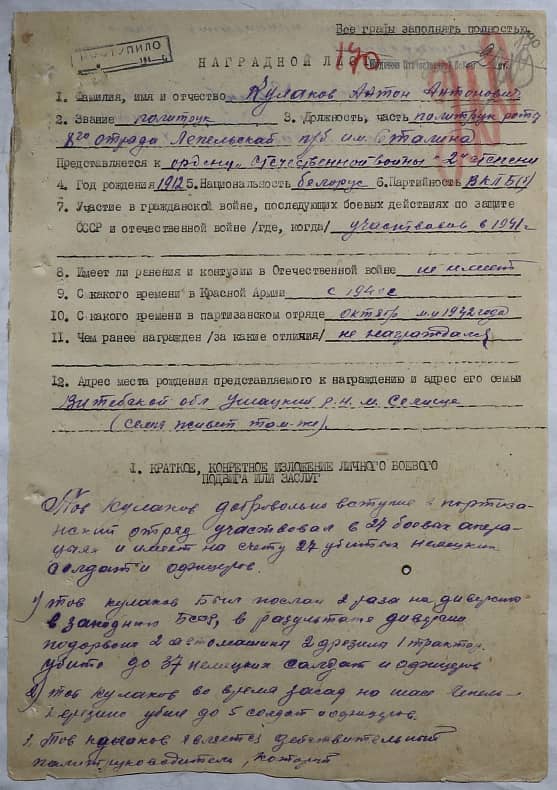 Все графы заполнять полностью.
ПОСТУПИЛО
190
НАГРАДНОЙ
1. Фамилия, имя и отчество Кулаков Антон Антонович
2. Звание политрук 3. Должность, часть политрук роты
8го отряда Лепельской п/б им. Сталина
Представляется к ордену „Отечественной войны" 2й степени
4. Год рождения 1912 5. Национальность белорус 6. Партийность ВКП(б)
7. Участие в гражданской войне, последующих боевых действиях по защите
СССР и отечественной войне /где, когда/ участвовал в 1941г
8. Имеет ли ранения и контузии в Отечественной войне не имеет
9. С какого времени в Красной Армии с
10. С какого времени в партизанском отряде октябр м-ц 1942 года
11. Чем ранее награжден /за какие отличия/ не награждался
12. Адрес места рождения представляемого к награждению и адрес его семьи
Витебской обл Ушацкий р-н м. Селище
(семя живет там-же).
1. КРАТКОЕ, КОНКРЕТНОЕ ИЗЛОЖЕНИЕ ЛИЧНОГО БОЕВОГО
ПОДВИГА ИЛИ ЗАСЛУГ
Тов Кулаков добровольно вступив в партиза-
нский отряд участвовал в 27 боевых опера-
циях и имеет на счету 27 убитых немецких
солдат и офицеров.
1) Тов Кулаков был послан 2 раза на диверсию
в западных БССР, в результате диверсии
подорвано 2 автомашины 2 дрезина 1 трактор.
убито до 37 немецких солдат и офицеров
2) тов Кулаков во время засад на шасе Лепель-
Березино убил до 5 солдат и офицеров.
3. Тов Кулаков является действительный
политруководитель, который